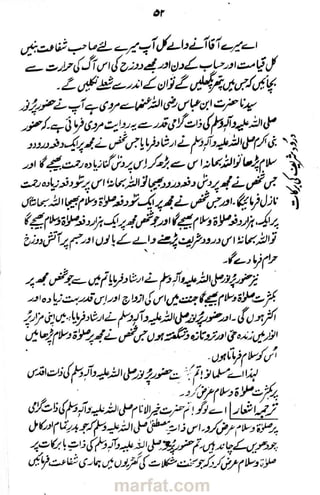 ۵۲
اے میرے آقا آنے والے کل آپ میرے لئے صاحب شفاعت بنیں
کل قیامت اور حساب کے دن اور مجھے دوزخ کی اس آگ کی حرارت سے
بچائیں کہ جس میں پتھر پگھلیں گے تو ان کے اندر سے شعلے نکلیں گے۔
سیدنا حضرت ابن عباس رضی اللہ عنہما سے مروی ہے آپ نے حضور پرنور
صلی اللہ علیہ وآلہ وسلم کی ذات گرامی قدر سے یہ روایت مروی فرمائی ہے۔ کہ حضور
نبی اکرم صلی اللہ علیہ وآلہ وسلم نے ارشاد فرمایا جس نے مجھ پر ایک دفعہ درود و
سلام پڑھا تو اللہ سبحانہٗ اس سے بڑھ کر اس پر دس گنا زیادہ رحمت بھیجے گا اور
جس شخص نے مجھ پر دس دفعہ درود بھیجا تو اللہ سبحانہٗ اس پر سو دفعہ زیادہ رحمت
نازل فرمائیگا۔ اور جس شخص نے مجھ پر سو دفعہ صلوٰۃ و سلام بھیجا اللہ سبحانہٗ اس
پر ایک ہزار دفعہ صلوٰۃ و سلام بھیجے گا اور جو شخص مجھ پر ایک ہزار دفعہ صلوٰۃ و سلام بھیجے گا
تو اللہ سبحانہٗ اس درود شریف پڑھنے والے کے بالوں اور جسم پر آتش دوزخ
حرام فرما دے گا۔
درود شریف کی برکات
نیز حضور پرنور صلی اللہ علیہ وآلہ وسلم نے ارشاد فرمایا تم میں سے جو شخص مجھ پر
بکثرت صلوٰۃ و سلام بھیجے گا جنت میں اس کی ازواج اور اس قدر بہت زیادہ اور
اکثر ہوں گی۔ اور حضور پرنور صلی اللہ علیہ وآلہ وسلم نے ارشاد فرمایا ہے۔ میں اپنی مزار پر
انوار میں زندہ حتیٰ اور تر و تازہ و شگفتہ ہوں جس شخص نے مجھ پر صلوٰۃ و سلام پڑھا میں
اس کو سلام فرماتا ہوں۔
لہٰذا اے مسلمانو! تم حضور پرنور صلی اللہ علیہ وآلہ وسلم کی ذات اقدس
پر بکثرت صلوٰۃ و سلام عرض کرو۔
ترجمہ اشعار اے لوگو! تم حضرت خیر الانام صلی اللہ علیہ وآلہ وسلم کی ذات گرامی
پر صلوٰۃ و سلام عرض کرو۔ اس ذات مصطفیٰ صلی اللہ علیہ وآلہ وسلم کی جو بدر تمام اور کامل
چودھویں کے چاند ہیں۔ تم حضور پرنور صلی اللہ علیہ وآلہ وسلم کی ذات بابرکات پر
صلوٰۃ و سلام عرض کرو کہ جو سخت مشکلات کی گھڑیوں میں ہماری شفاعت فرمائیں
marfat.com